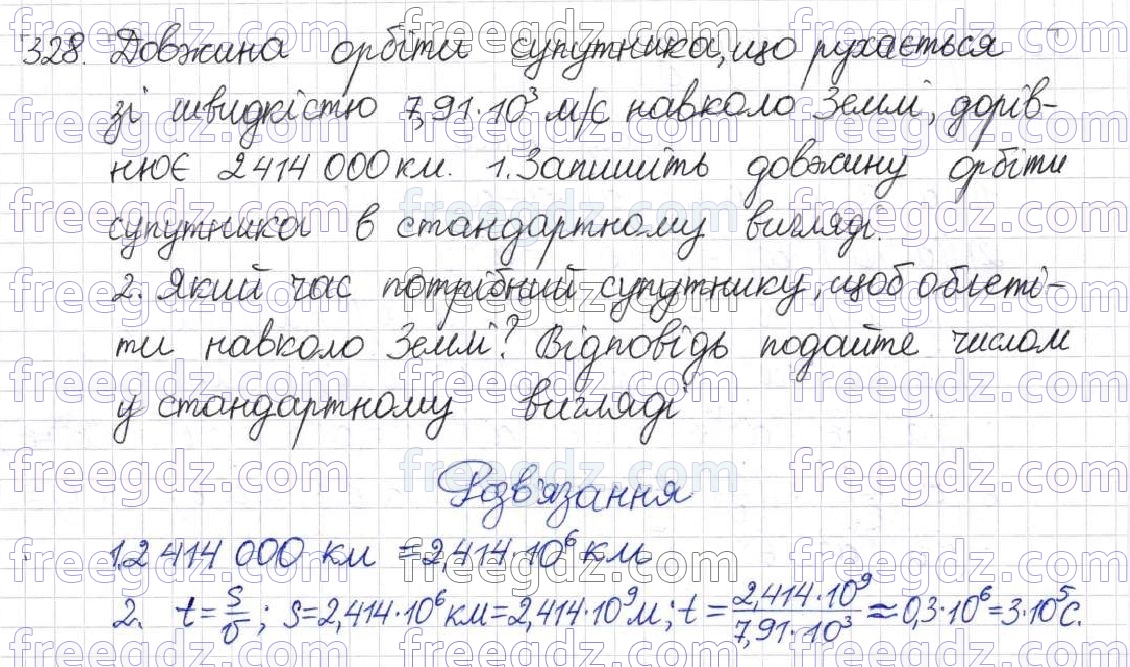 328. Довжина орбіти супутника, що рухається
зі швидкістю 7,91·10³ м/с навколо Землі, дорів-
нює 2414 000 км. 1. Запишіть довжину орбіти
супутника в стандартному вигляді.
2. Який час потрібний супутнику, щоб облеті-
ти навколо Землі? Відповідь подайте числом
у стандартному вигляді
Розв'язання
1. 2 414 000 км = 2,414·10⁶ км
2. t = s/υ ; s = 2,414·10⁶ км = 2,414·10⁹ м; t = 2,414·10⁹/7,91·10³ ≈ 0,3·10⁶ = 3·10⁵ с.
freegdz.com freegdz.com freegdz.com